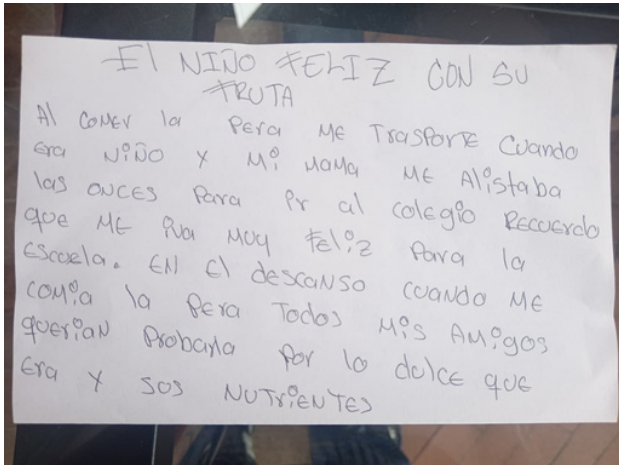 El NIÑO FELIZ CON SU
FRUTA
Al comer la Pera ME TrasPorTE Cuando
Era NiÑO Y Mi MaMa ME Alistaba
las ONCES Para Pr al colegio REcuerdo
que ME iva Muy FEliz Para la
Escuela. EN El descanso cuando ME
comia la Pera Todos Mis AMigos
querian Probarla Por lo dulce que
Era Y sus NUTriENTES